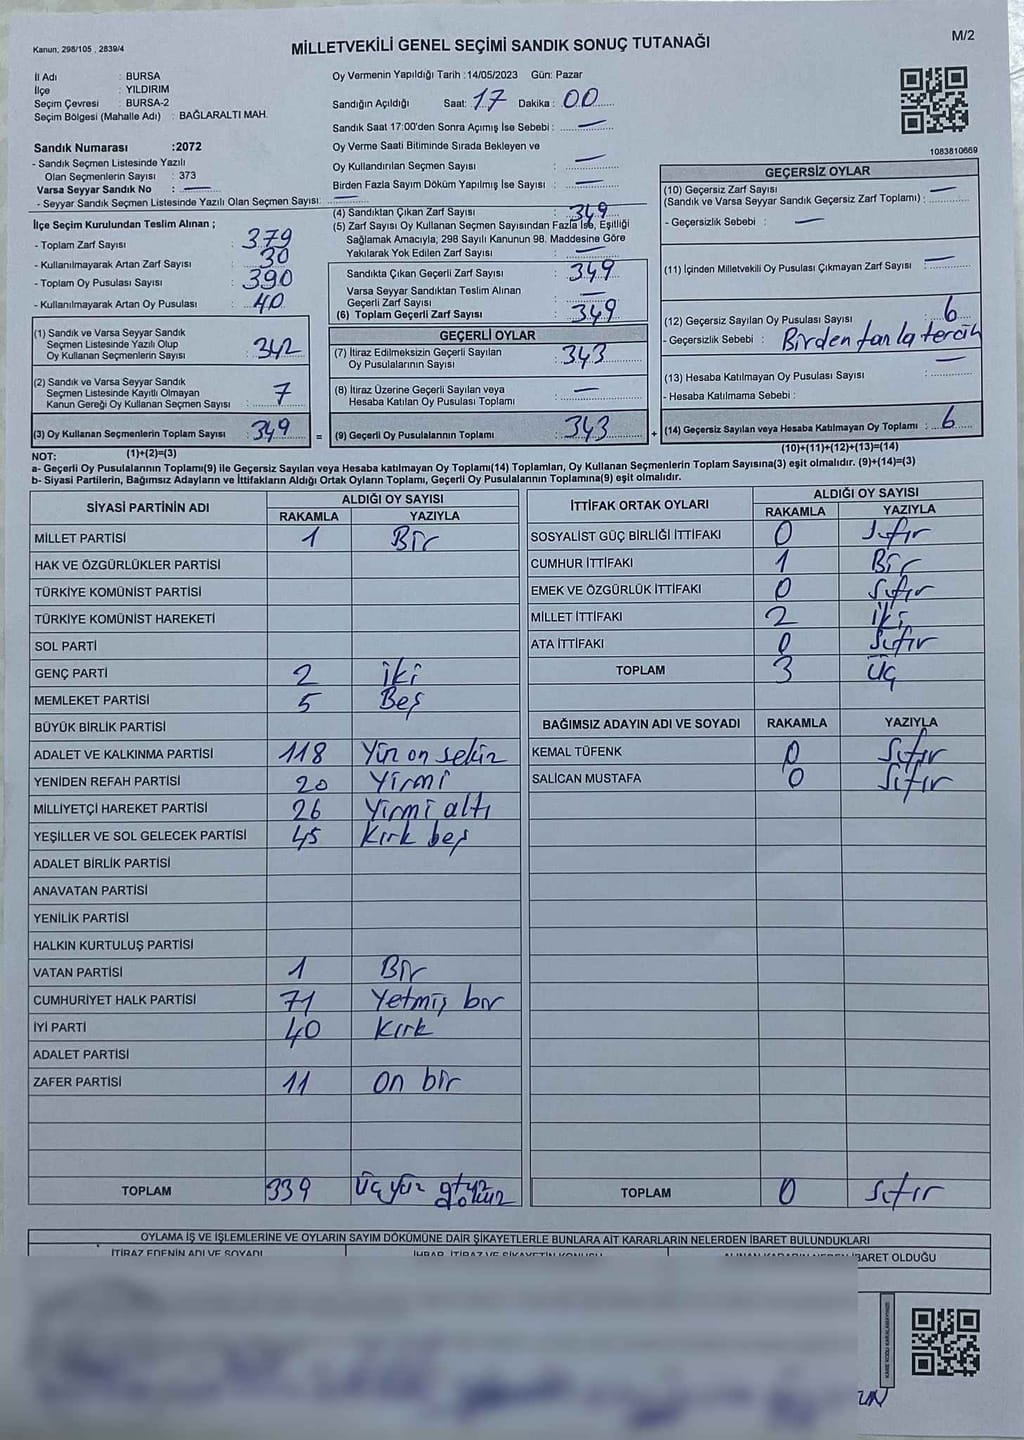 Kanun, 298/105 , 2839/4
MİLLETVEKİLİ GENEL SEÇİMİ SANDIK SONUÇ TUTANAĞI
M/2
İl Adı : BURSA
İlçe : YILDIRIM
Seçim Çevresi : BURSA-2
Seçim Bölgesi (Mahalle Adı) : BAĞLARALTI MAH.
Sandık Numarası :2072
- Sandık Seçmen Listesinde Yazılı
Olan Seçmenlerin Sayısı : 373
Varsa Seyyar Sandık No : —
- Seyyar Sandık Seçmen Listesinde Yazılı Olan Seçmen Sayısı: —
İlçe Seçim Kurulundan Teslim Alınan ;
- Toplam Zarf Sayısı : 379
- Kullanılmayarak Artan Zarf Sayısı : 30
- Toplam Oy Pusulası Sayısı : 390
- Kullanılmayarak Artan Oy Pusulası : 40
(1) Sandık ve Varsa Seyyar Sandık
Seçmen Listesinde Yazılı Olup
Oy Kullanan Seçmenlerin Sayısı : 342
(2) Sandık ve Varsa Seyyar Sandık
Seçmen Listesinde Kayıtlı Olmayan
Kanun Gereği Oy Kullanan Seçmen Sayısı : 7
(3) Oy Kullanan Seçmenlerin Toplam Sayısı : 349 =
Oy Vermenin Yapıldığı Tarih :14/05/2023 Gün: Pazar
Sandığın Açıldığı Saat: 17 Dakika : 00
Sandık Saat 17:00'den Sonra Açımış İse Sebebi : —
Oy Verme Saati Bitiminde Sırada Bekleyen ve
Oy Kullandırılan Seçmen Sayısı : —
Birden Fazla Sayım Döküm Yapılmış İse Sayısı : —
(4) Sandıktan Çıkan Zarf Sayısı : 349
(5) Zarf Sayısı Oy Kullanan Seçmen Sayısından Fazla İse, Eşitliği
Sağlamak Amacıyla, 298 Sayılı Kanunun 98. Maddesine Göre
Yakılarak Yok Edilen Zarf Sayısı : —
Sandıkta Çıkan Geçerli Zarf Sayısı : 349
Varsa Seyyar Sandıktan Teslim Alınan
Geçerli Zarf Sayısı : —
(6) Toplam Geçerli Zarf Sayısı : 349
GEÇERLİ OYLAR
(7) İtiraz Edilmeksizin Geçerli Sayılan
Oy Pusulalarının Sayısı : 343
(8) İtiraz Üzerine Geçerli Sayılan veya
Hesaba Katılan Oy Pusulası Toplamı : —
(9) Geçerli Oy Pusulalarının Toplamı : 343 +
1083810669
GEÇERSİZ OYLAR
(10) Geçersiz Zarf Sayısı —
(Sandık ve Varsa Seyyar Sandık Geçersiz Zarf Toplamı) :
- Geçersizlik Sebebi : —
(11) İçinden Milletvekili Oy Pusulası Çıkmayan Zarf Sayısı : —
(12) Geçersiz Sayılan Oy Pusulası Sayısı : 6
- Geçersizlik Sebebi : Birden fanla tercih
(13) Hesaba Katılmayan Oy Pusulası Sayısı : —
- Hesaba Katılmama Sebebi :
(14) Geçersiz Sayılan veya Hesaba Katılmayan Oy Toplamı : 6
(10)+(11)+(12)+(13)=(14)
NOT: (1)+(2)=(3)
a- Geçerli Oy Pusulalarının Toplamı(9) ile Geçersiz Sayılan veya Hesaba katılmayan Oy Toplamı(14) Toplamları, Oy Kullanan Seçmenlerin Toplam Sayısına(3) eşit olmalıdır. (9)+(14)=(3)
b- Siyasi Partilerin, Bağımsız Adayların ve İttifakların Aldığı Ortak Oyların Toplamı, Geçerli Oy Pusulalarının Toplamına(9) eşit olmalıdır.
SİYASİ PARTİNİN ADI ALDIĞI OY SAYISI
RAKAMLA YAZIYLA
MİLLET PARTİSİ 1 Bir
HAK VE ÖZGÜRLÜKLER PARTİSİ
TÜRKİYE KOMÜNİST PARTİSİ
TÜRKİYE KOMÜNİST HAREKETİ
SOL PARTİ
GENÇ PARTİ 2 iki
MEMLEKET PARTİSİ 5 Beş
BÜYÜK BİRLİK PARTİSİ
ADALET VE KALKINMA PARTİSİ 118 Yüz on sekiz
YENİDEN REFAH PARTİSİ 20 Yirmi
MİLLİYETÇİ HAREKET PARTİSİ 26 Yirmi altı
YEŞİLLER VE SOL GELECEK PARTİSİ 45 Kırk beş
ADALET BİRLİK PARTİSİ
ANAVATAN PARTİSİ
YENİLİK PARTİSİ
HALKIN KURTULUŞ PARTİSİ
VATAN PARTİSİ 1 Bir
CUMHURİYET HALK PARTİSİ 71 Yetmiş bir
İYİ PARTİ 40 Kırk
ADALET PARTİSİ
ZAFER PARTİSİ 11 on bir
TOPLAM 339 Üç yüz otuz dokuz
İTTİFAK ORTAK OYLARI ALDIĞI OY SAYISI
RAKAMLA YAZIYLA
SOSYALİST GÜÇ BİRLİĞİ İTTİFAKI 0 Sıfır
CUMHUR İTTİFAKI 1 Bir
EMEK VE ÖZGÜRLÜK İTTİFAKI 0 Sıfır
MİLLET İTTİFAKI 2 iki
ATA İTTİFAKI 0 Sıfır
TOPLAM 3 Üç
BAĞIMSIZ ADAYIN ADI VE SOYADI RAKAMLA YAZIYLA
KEMAL TÜFENK 0 Sıfır
SALİCAN MUSTAFA 0 Sıfır
TOPLAM 0 Sıfır
OYLAMA İŞ VE İŞLEMLERİNE VE OYLARIN SAYIM DÖKÜMÜNE DAİR ŞİKAYETLERLE BUNLARA AİT KARARLARIN NELERDEN İBARET BULUNDUKLARI
İTİRAZ EDENİN ADI VE SOYADI İHBAR, İTİRAZ VE ŞİKAYETİN KONUSU ALINAN KARARIN NEDEN İBARET OLDUĞU
KARE KODU KARALAMAYINIZ!